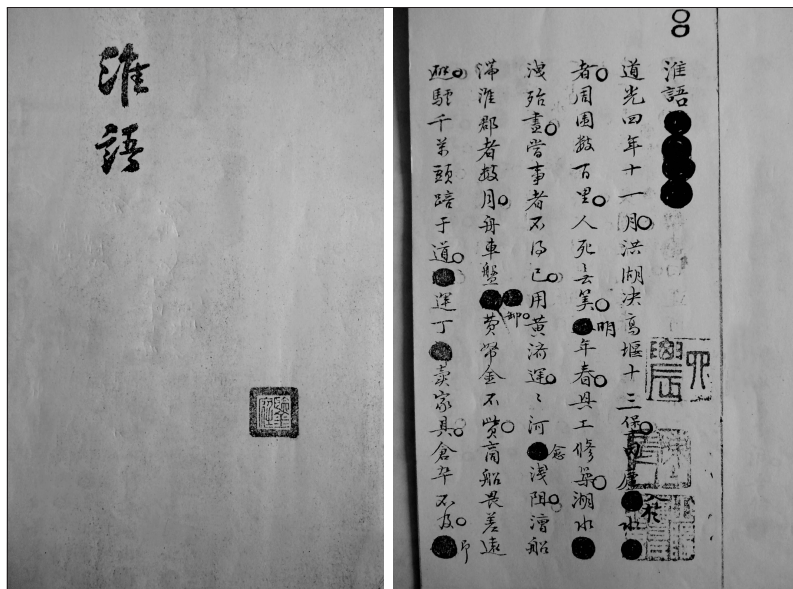 淮語
淮語
道光四年十一月洪湖决高堰十三保水
者周圍数百里人死无筭明年春具工修築湖水
洩殆盡當事者不得已用黄济運〻河愈淺阻漕船
滞淮郡者数月舟車盤卸費帑金不貲商船畏差遠
驢千萬頭踣于道運丁賣家具倉卒不及